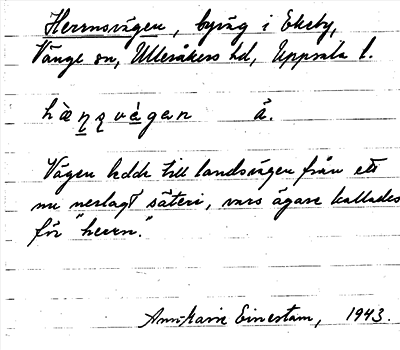 Herrnsvägen, byväg i Ekeby,
Vänge sn, Ulleråkers hd, Uppsala l.
hæ̀ṇṣvä̀gan å.
Vägen ledde till landsvägen från ett
nu nerlagt säteri, vars ägare kallades
för "herrn."
Ann-Marie Einestam, 1943.